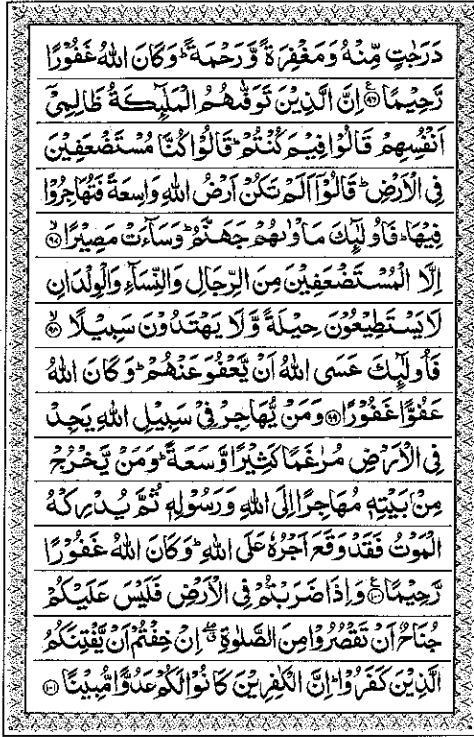 دَرَجٰتٍ مِّنْهُ وَمَغْفِرَةً وَّرَحْمَةً ؕ وَكَانَ اللّٰهُ غَفُوْرًا
رَّحِيْمًا ﴿۹۶﴾ ع اِنَّ الَّذِيْنَ تَوَفّٰىهُمُ الْمَلٰٓئِكَةُ ظَالِمِيْٓ
اَنْفُسِهِمْ قَالُوْا فِيْمَ كُنْتُمْ ؕ قَالُوْا كُنَّا مُسْتَضْعَفِيْنَ
فِي الْاَرْضِ ؕ قَالُوْٓا اَلَمْ تَكُنْ اَرْضُ اللّٰهِ وَاسِعَةً فَتُهَاجِرُوْا
فِيْهَا ؕ فَاُولٰٓئِكَ مَاْوٰىهُمْ جَهَنَّمُ ؕ وَسَآءَتْ مَصِيْرًا ﴿۹۷﴾ ۙ
اِلَّا الْمُسْتَضْعَفِيْنَ مِنَ الرِّجَالِ وَالنِّسَآءِ وَالْوِلْدَانِ
لَا يَسْتَطِيْعُوْنَ حِيْلَةً وَّلَا يَهْتَدُوْنَ سَبِيْلًا ﴿۹۸﴾ ۙ
فَاُولٰٓئِكَ عَسَى اللّٰهُ اَنْ يَّعْفُوَ عَنْهُمْ ؕ وَكَانَ اللّٰهُ
عَفُوًّا غَفُوْرًا ﴿۹۹﴾ وَمَنْ يُّهَاجِرْ فِيْ سَبِيْلِ اللّٰهِ يَجِدْ
فِي الْاَرْضِ مُرٰغَمًا كَثِيْرًا وَّسَعَةً ؕ وَمَنْ يَّخْرُجْ
مِنْۢ بَيْتِهٖ مُهَاجِرًا اِلَى اللّٰهِ وَرَسُوْلِهٖ ثُمَّ يُدْرِكْهُ
الْمَوْتُ فَقَدْ وَقَعَ اَجْرُهٗ عَلَى اللّٰهِ ؕ وَكَانَ اللّٰهُ غَفُوْرًا
رَّحِيْمًا ﴿۱۰۰﴾ ع وَاِذَا ضَرَبْتُمْ فِي الْاَرْضِ فَلَيْسَ عَلَيْكُمْ
جُنَاحٌ اَنْ تَقْصُرُوْا مِنَ الصَّلٰوةِ ۖ اِنْ خِفْتُمْ اَنْ يَّفْتِنَكُمُ
الَّذِيْنَ كَفَرُوْا ؕ اِنَّ الْكٰفِرِيْنَ كَانُوْا لَكُمْ عَدُوًّا مُّبِيْنًا ﴿۱۰۱﴾